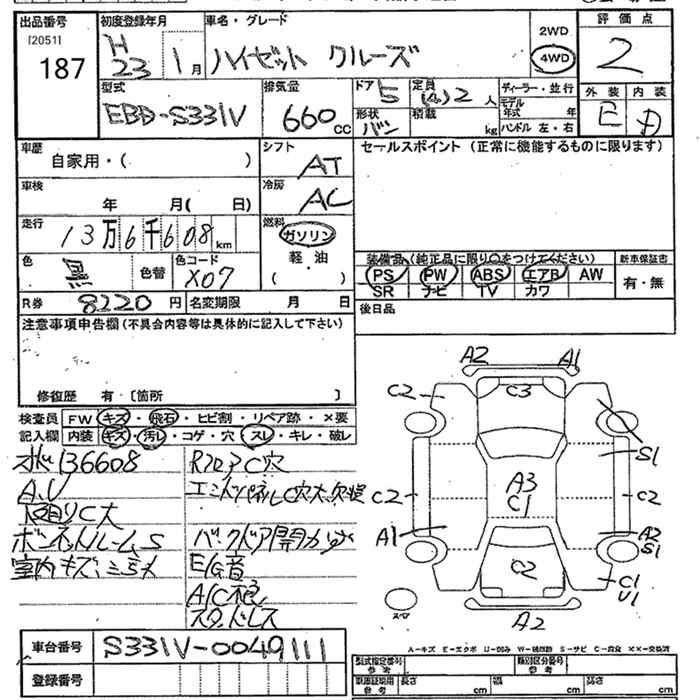 出品番号 初度登録年月 車名・グレード 2WD 評価点
[2051] H 23 1月 ハイゼット クルーズ 4WD 2
187
型式 排気量 ドア 5 定員 (4)2人 ディーラー・並行 外装 内装
EBD-S331V 660cc 形状 バン 積載 kg モデル年式 年 E D
ハンドル 左・右
車歴 シフト セールスポイント (正常に機能するものに限ります)
自家用・( ) AT
車検 冷房
年 月( 日) AC
走行 燃料
13万6千608km ガソリン
軽・油
色 黒 色替 色コード X07 ( )
装備品 (純正品に限り○をつけてください) 新車保証書
PS PW ABS エアB AW 有・無
SR ナビ TV カワ
R券 8220円 名変期限 月 日 後日品
注意事項申告欄(不具合内容等は具体的に記入して下さい)
修復歴 有・〔箇所 〕
検査員 FW キズ・飛石・ヒビ割・リペア跡・×要
記入欄 内装 キズ・汚レ・コゲ・穴・スレ・キレ・破レ
136608 RフロアC穴
A.V
C大
ボンネット S バックドア開
室内キズ E/G音
A/C
スタッドレス
A2 A1
C2 C3
S1
C2 A3 C1 C2
A1 A2 S1
C2 C1 U1
スペア A2
A-キズ E-エクボ U-凹み W-補修跡 S-サビ C-腐食 ××-交換済
車台番号 S331V-0049111
登録番号
型式指定番号 参考 類別区分番号 参考
車庫証明用 参考 長さ cm 幅 cm 高さ cm